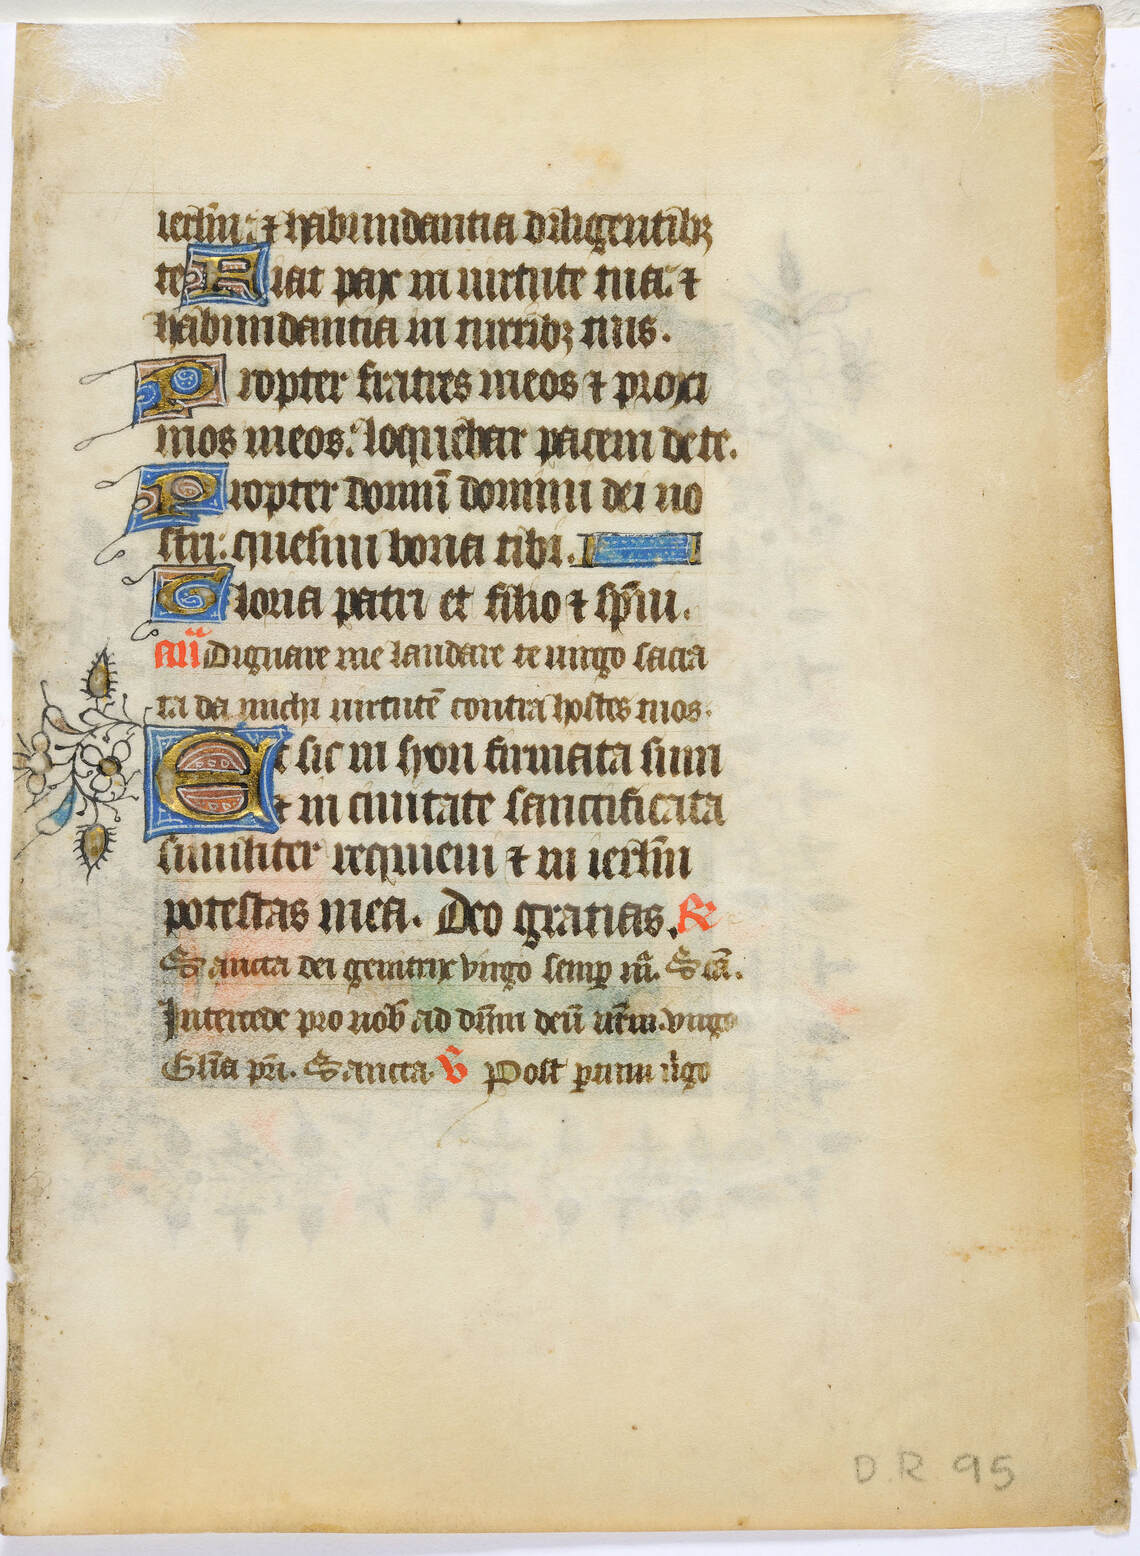 ierl̄m: ⁊ habundantia diligentibꝫ
te Fiat pax in uirtute tua: ⁊
habundantia in turribꝫ tuis.
Propter fratres meos ⁊ proxi
mos meos: loquebar pacem de te.
Propter domū domini dei no
stri: quesiui bona tibi.
Gloria patri et filio ⁊ sp̄ui.
an̄ Dignare me laudare te uirgo sacra
ta da michi uirtutē contra hostes tuos.
Et sic in syon firmata sum
⁊ in ciuitate sanctificata
similiter requieui ⁊ in ierl̄m
potestas mea. Deo gratias. R
Sancta dei genitrix virgo semp̱ m̄. Scā.
Intercede pro nob̄ ad dn̄m deū nr̄m. virgo
Gl̄ia pr̄i. Sancta. V Post p̱tum u̍go
D. R 95